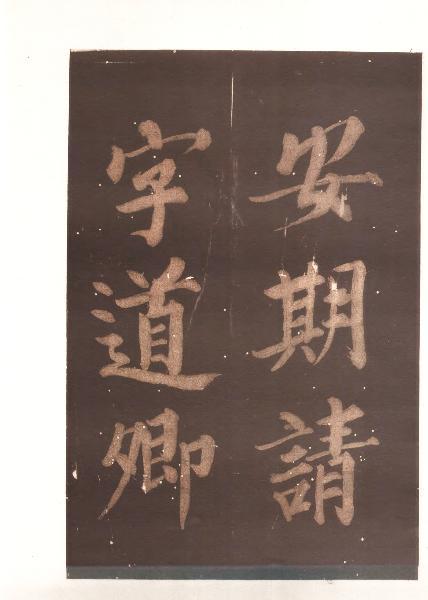 安期請
字道卿